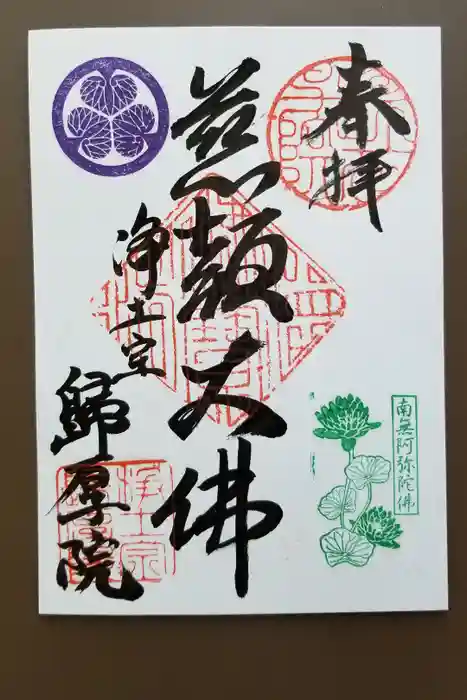 奉拝
慈願大佛
浄土宗
歸厚院
南無阿弥陀佛